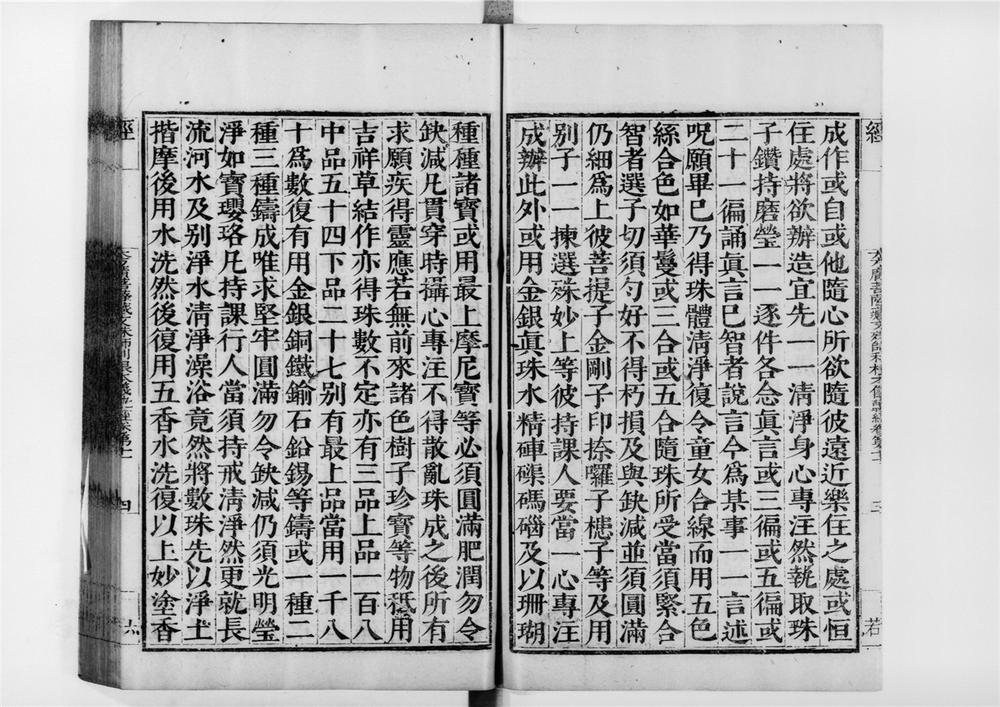 成作或自或他隨心所欲隨彼遠近樂住之處或恒
住處將欲辦造宜先一一清淨身心專注然執取珠
子鑽持磨瑩一一逐件各念眞言或三徧或五徧或
二十一徧誦眞言已智者說言今爲某事一一言述
呪願畢已乃得珠體清淨復令童女合線而用五色
絲合色如華鬘或三合或五合隨珠所受當須緊合
智者選子切須匀好不得朽損及與缺減並須圓滿
仍細爲上彼菩提子金剛子印捺囉子槵子等及用
別子一一揀選殊妙上等彼持課人要當一心專注
成辦此外或用金銀眞珠水精硨磲碼碯及以珊瑚
種種諸寶或用最上摩尼寶等必須圓滿肥潤勿令
缺減凡貫穿時攝心專注不得散亂珠成之後所有
求願疾得靈應若無前來諸色樹子珍寶等物秖用
吉祥草結作亦得珠數不定亦有三品上品一百八
中品五十四下品二十七別有最上品當用一千八
十爲數復有用金銀銅鐵鍮石鉛錫等鑄或一種二
種三種鑄成唯求堅牢圓滿勿令缺減仍須光明瑩
淨如寶瓔珞凡持課行人當須持戒清淨然更就長
流河水及別淨水清淨澡浴竟然將數珠先以淨土
揩摩後用水洗然後復用五香水洗復以上妙塗香
經
三
若
經
四